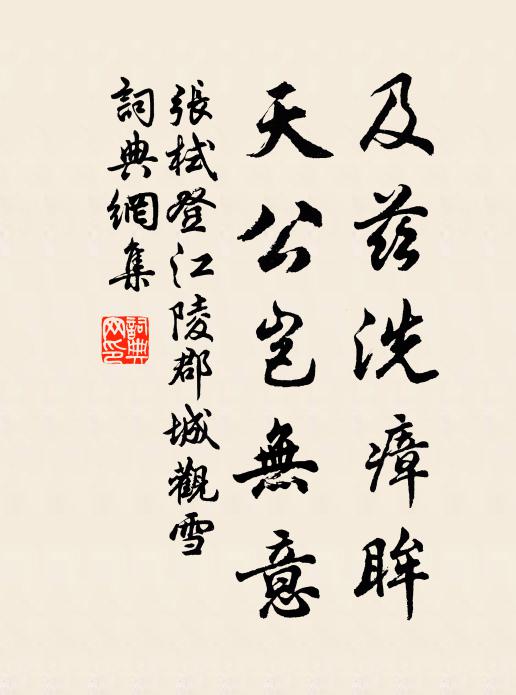 及茲洗瘴眸
天公岂無意
張栻登江陵郡城觀雪
詞典網集
詞典
网印